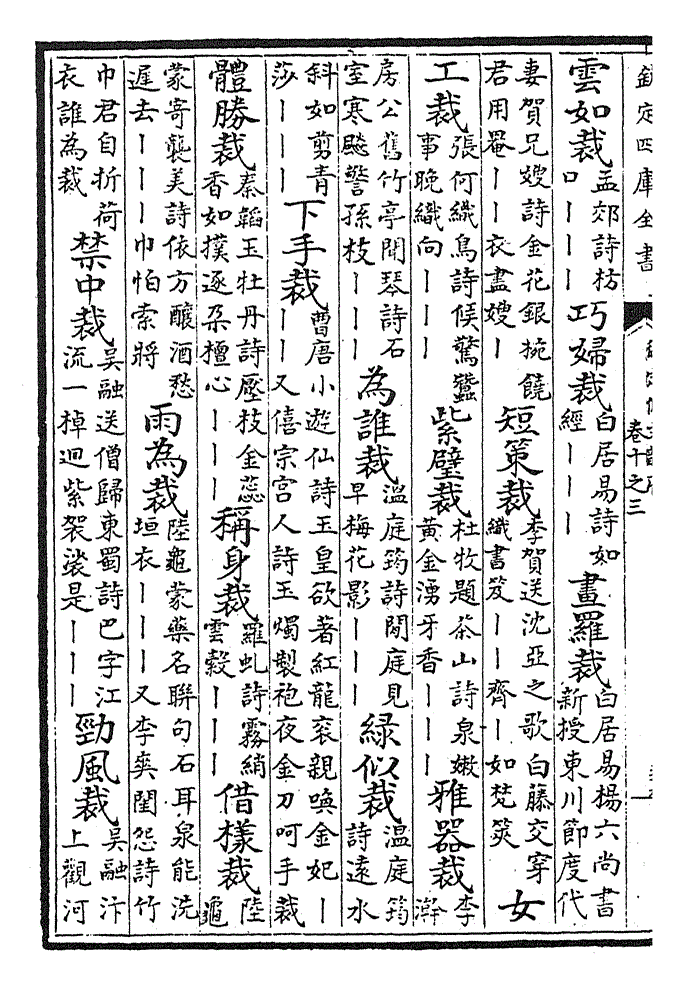 欽定四庫全書
卷十之三
雲如裁孟郊詩枋口｜｜｜巧婦裁白居易詩如經｜｜｜畫羅裁白居易楊六尚書新授東川節度代
妻賀兄嫂詩金花銀椀饒君用罨｜｜衣盡嫂｜短策裁李賀送沈亞之歌白藤交穿織書笈｜｜齊｜如梵筴女
工裁張何織鳥詩候驚蠶事晚織向｜｜｜紫璧裁杜牧題茶山詩泉嫩黃金湧牙香｜｜｜雅器裁李瀚
房公舊竹亭聞琴詩石室寒飈警孫枝｜｜｜為誰裁溫庭筠詩閒庭見早梅花影｜｜｜綠似裁溫庭筠詩遠水
斜如剪青莎｜｜｜下手裁曹唐小遊仙詩玉皇欲著紅龍衮親喚金妃｜｜｜又僖宗宫人詩玉燭製袍夜金刀呵手裁
體勝裁秦韜玉牡丹詩壓枝金蕊香如撲逐朶檀心｜｜｜稱身裁羅虬詩霧綃雲縠｜｜｜借樣裁陸龜
蒙寄襲美詩依方釀酒愁遲去｜｜｜巾怕索將雨為裁陸龜蒙藥名聯句石耳泉能洗垣衣｜｜｜又李奭閨怨詩竹
巾君自折荷衣誰為裁禁中裁吳融送僧歸東蜀詩巴字江流一棹迴紫袈裟是｜｜｜勁風裁吳融汴上觀河